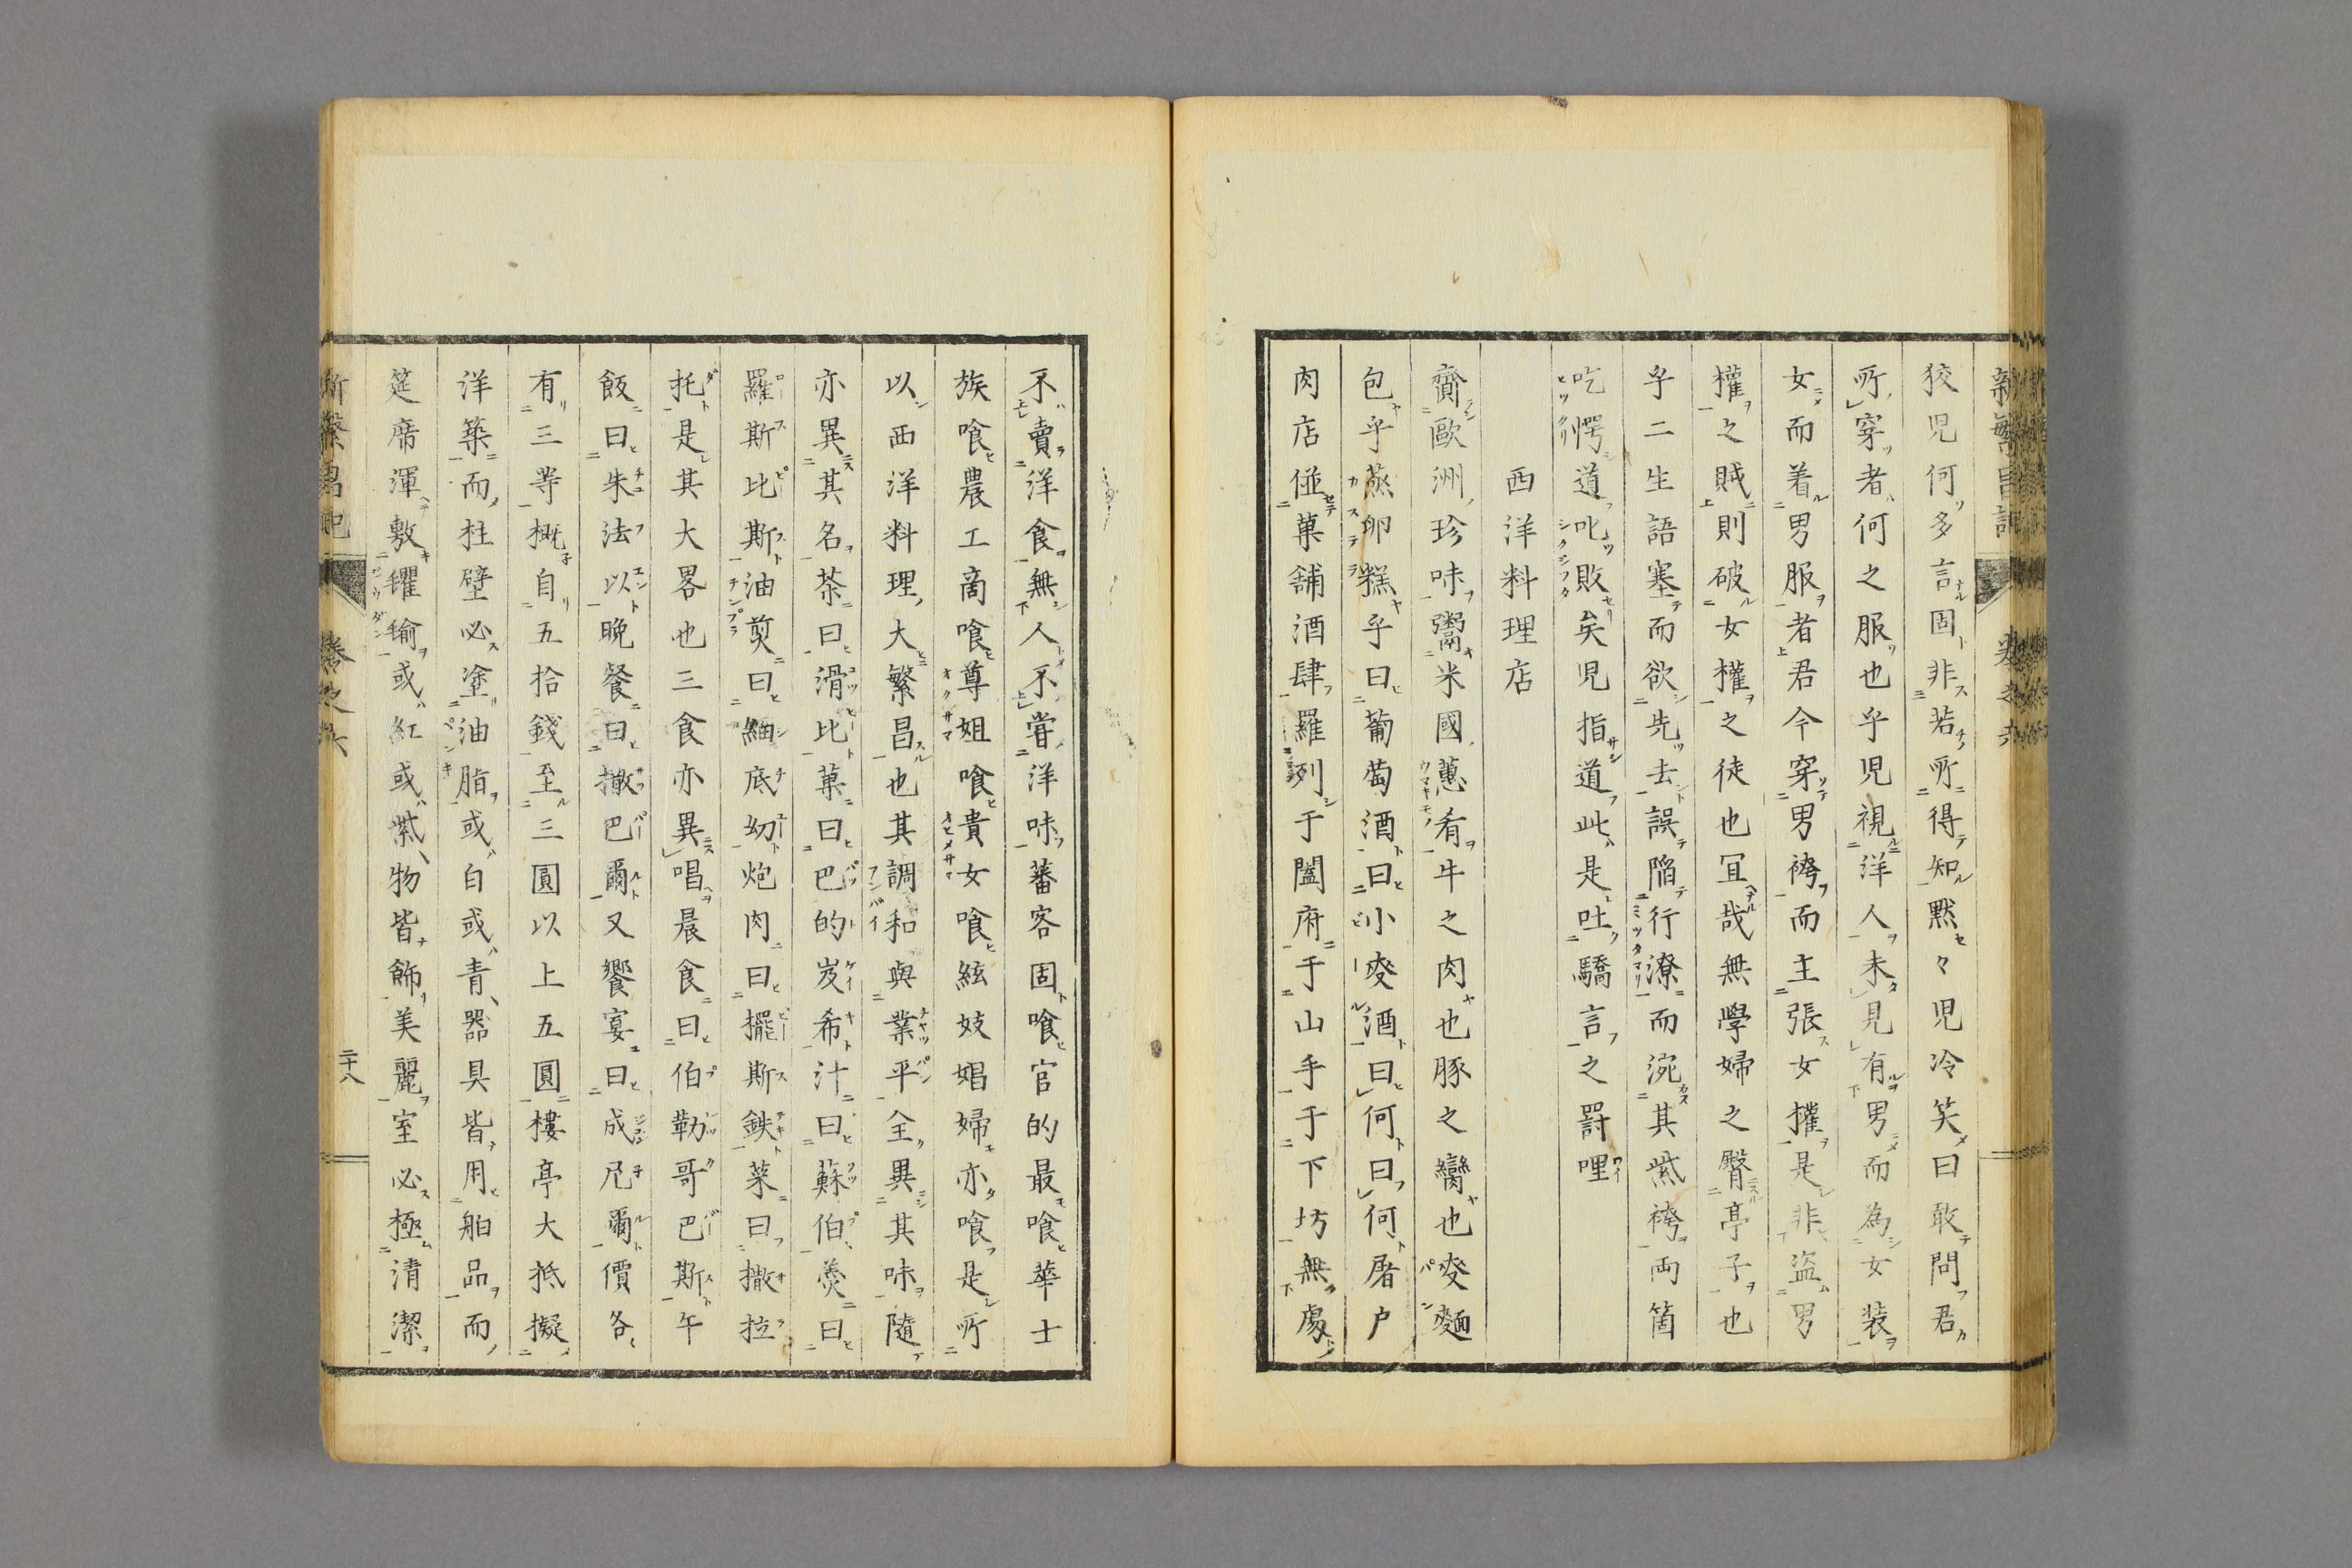 狡児何多言固非若所得知黙々児冷笑曰敢問君
所穿者何之服也乎児視洋人未見有男而為女装
女而着男服者君今穿男袴而主張女権是非盗男
權之賊則破女權之徒也冝哉無學婦之臀亭子也
乎二生語塞而欲先去誤陥行潦而涴其紫袴両箇
吃愕道叱敗矣児指道此是吐驕言之罸哩
西洋料理店
齎歐洲珍味鬻米國蕙肴牛之肉也豚之臠也麥麺
包乎蒸卵糕乎曰葡萄酒曰小麥酒曰何曰何屠戸
肉店併菓舗酒肆羅列于闔府于山手于下坊無處
不賣洋食無人不嘗洋味蕃客固喰官的最喰華士
族喰農工商喰尊姐喰貴女喰絃妓娼婦亦喰是所
以西洋料理大繁昌也其調和與業平全異其味隨
亦異其名茶曰滑比菓曰巴的岌希汁曰蘇伯羮曰
羅斯比斯油煎曰紬底幼炮肉曰擺斯鉄菜曰撒拉
托是其大畧也三食亦異唱晨食曰伯勒哥巴斯午
飯曰朱法以晩餐曰撒巴爾又饗宴曰成尼爾價各
有三等概自五拾錢至三圓以上五圓樓亭大抵擬
洋築而柱壁必塗油脂或白或青器具皆用舶品而
筵席渾敷氍毹或紅或紫物皆飾美麗室必極清潔
二十八